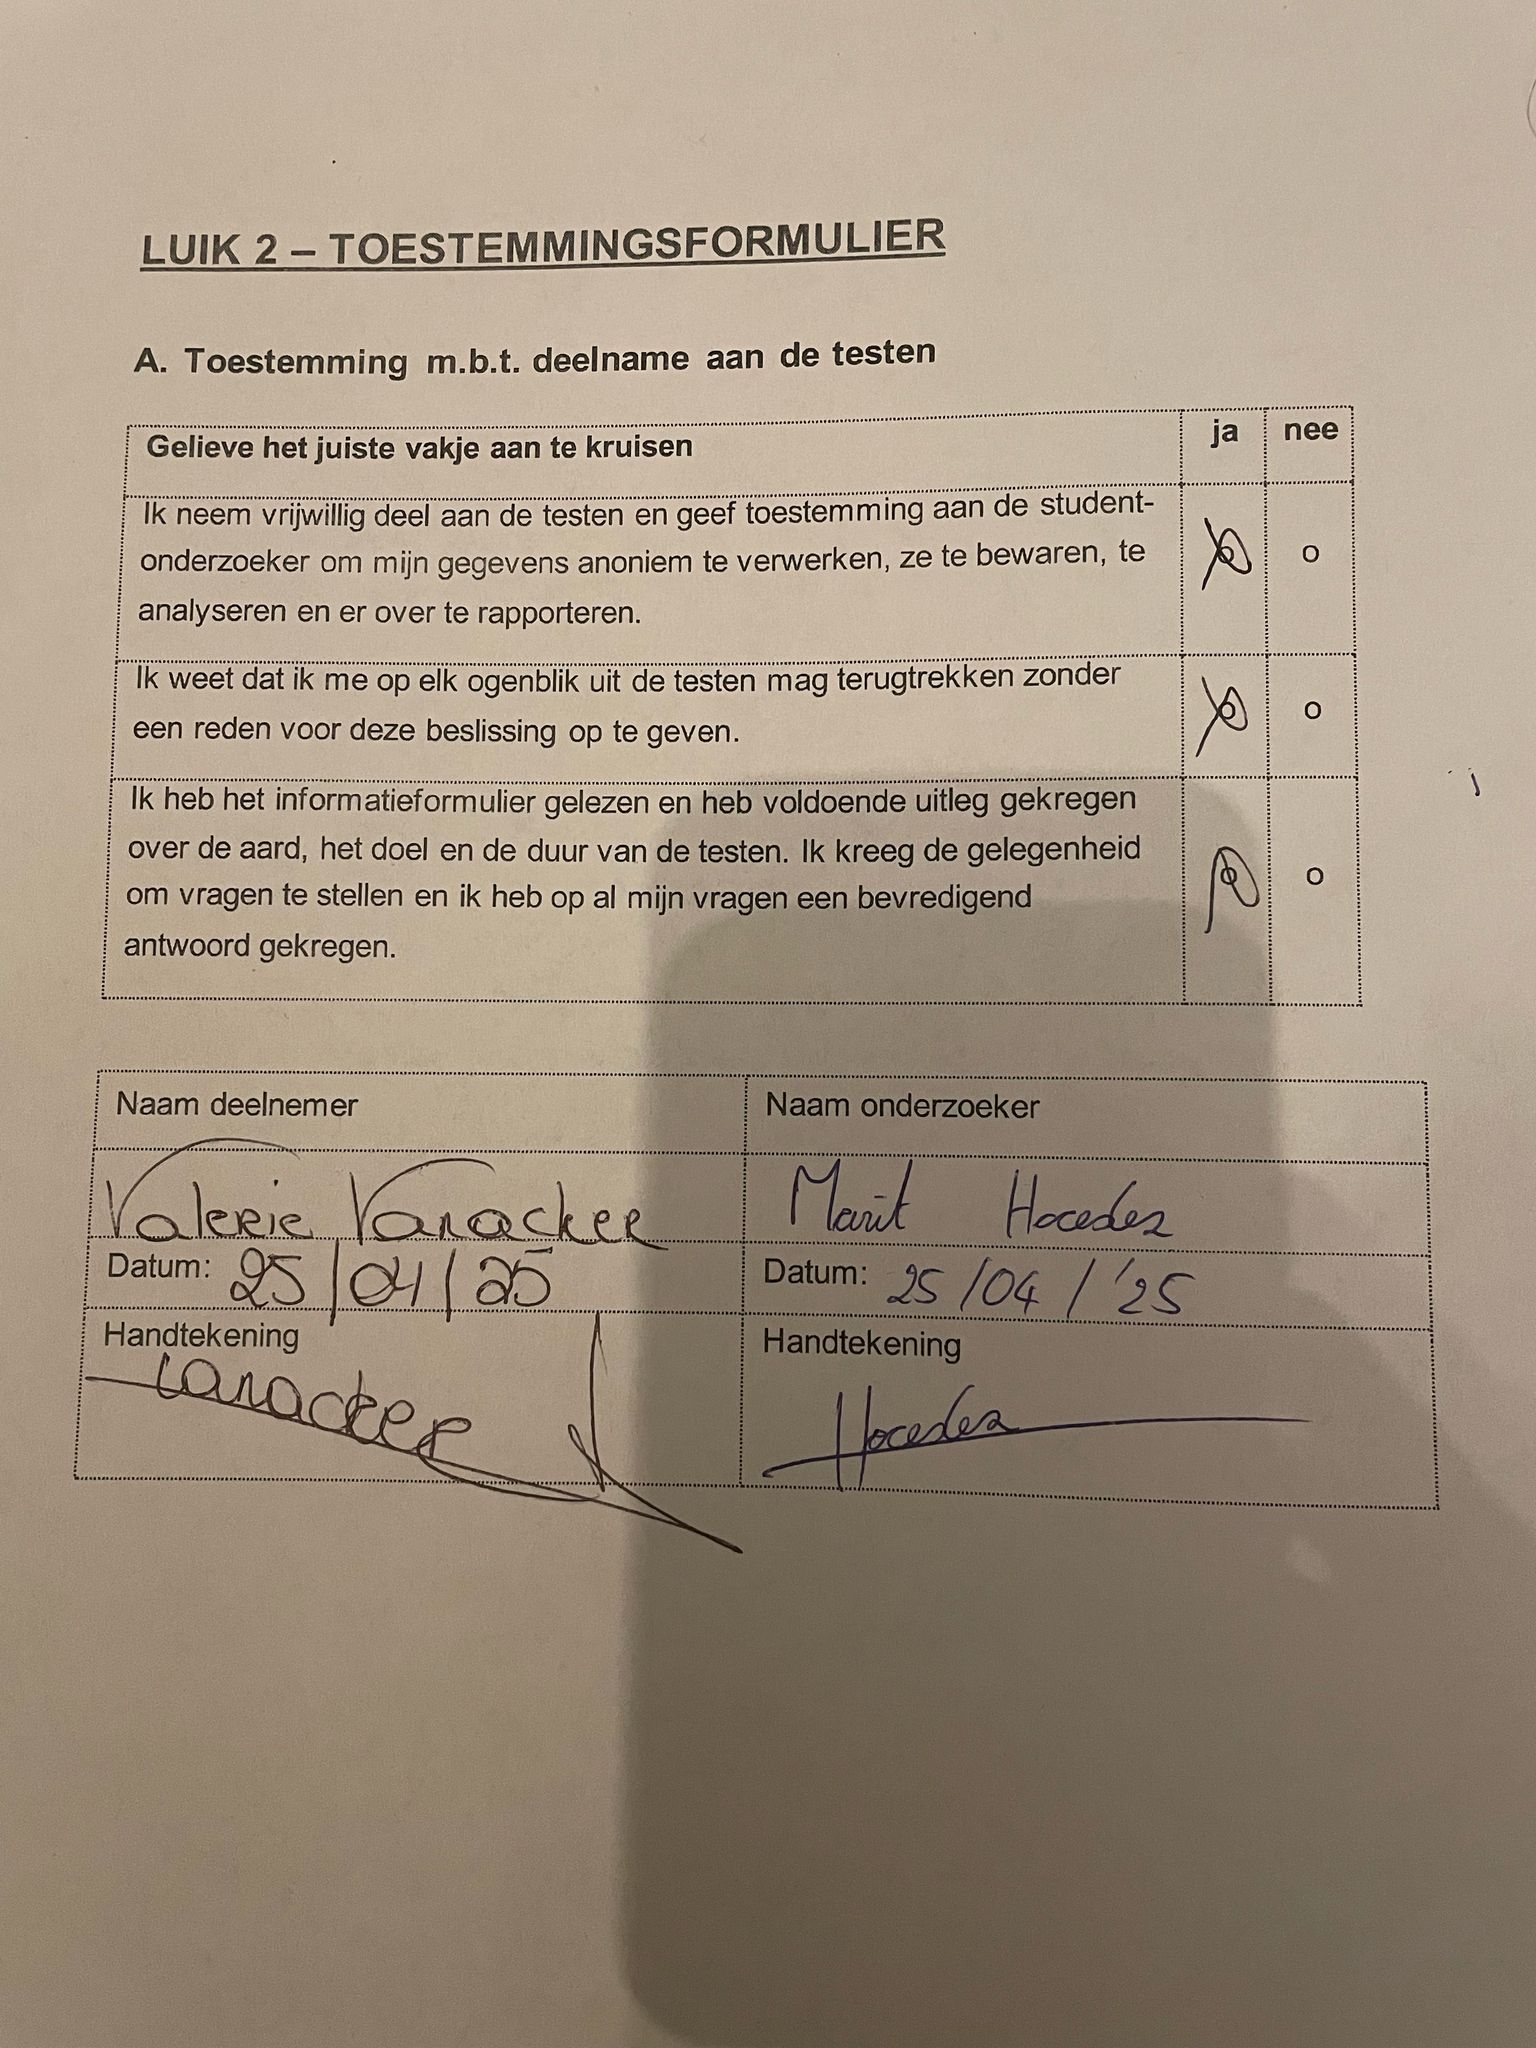 LUIK 2 – TOESTEMMINGSFORMULIER
A. Toestemming m.b.t. deelname aan de testen
Gelieve het juiste vakje aan te kruisen ja nee
Ik neem vrijwillig deel aan de testen en geef toestemming aan de student-
onderzoeker om mijn gegevens anoniem te verwerken, ze te bewaren, te
analyseren en er over te rapporteren.
o o
Ik weet dat ik me op elk ogenblik uit de testen mag terugtrekken zonder
een reden voor deze beslissing op te geven.
o o
Ik heb het informatieformulier gelezen en heb voldoende uitleg gekregen
over de aard, het doel en de duur van de testen. Ik kreeg de gelegenheid
om vragen te stellen en ik heb op al mijn vragen een bevredigend
antwoord gekregen.
o o
Naam deelnemer Naam onderzoeker
Valerie Vanacker Marit Hocedez
Datum: 25/04/25 Datum: 25/04/'25
Handtekening Handtekening
Vanacker Hocedez